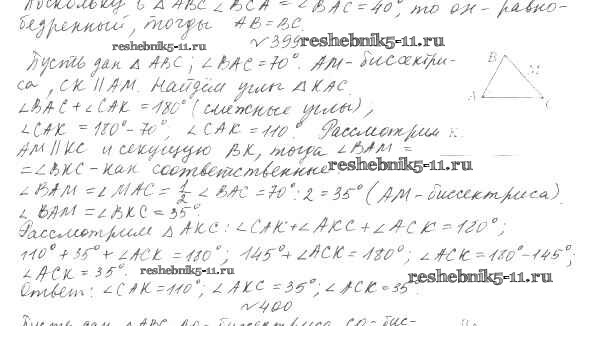 Поскольку в △ABC ∠BCA = ∠BAC = 40°, то он - равно-
бедренный, тогда AB = BC.
№399
reshebnik5-11.ru
reshebnik5-11.ru
Пусть дан △ABC; ∠BAC = 70°. AM - биссектри-
са, CK ∥ AM. Найдём углы △KAC.
B
M
A
C
∠BAC + ∠CAK = 180° (смежные углы),
∠CAK = 180° - 70°, ∠CAK = 110°. Рассмотрим
K
AM ∥ KC и секущую BK, тогда ∠BAM =
= ∠BKC - как соответственные
reshebnik5-11.ru
∠BAM = ∠MAC = 1/2 ∠BAC = 70° : 2 = 35° (AM - биссектриса).
∠BAM = ∠BKC = 35°.
Рассмотрим △AKC: ∠CAK + ∠AKC + ∠ACK = 180°;
110° + 35° + ∠ACK = 180°; 145° + ∠ACK = 180°; ∠ACK = 180° - 145°;
∠ACK = 35°.
reshebnik5-11.ru
reshebnik5-11.ru
Ответ: ∠CAK = 110°; ∠AKC = 35°; ∠ACK = 35°
№400
Пусть дан △ABC, биссектриса CO - бис-